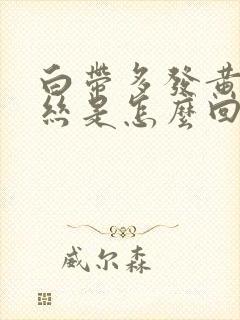 白帶多發黃
絲是怎麼回
威尔森